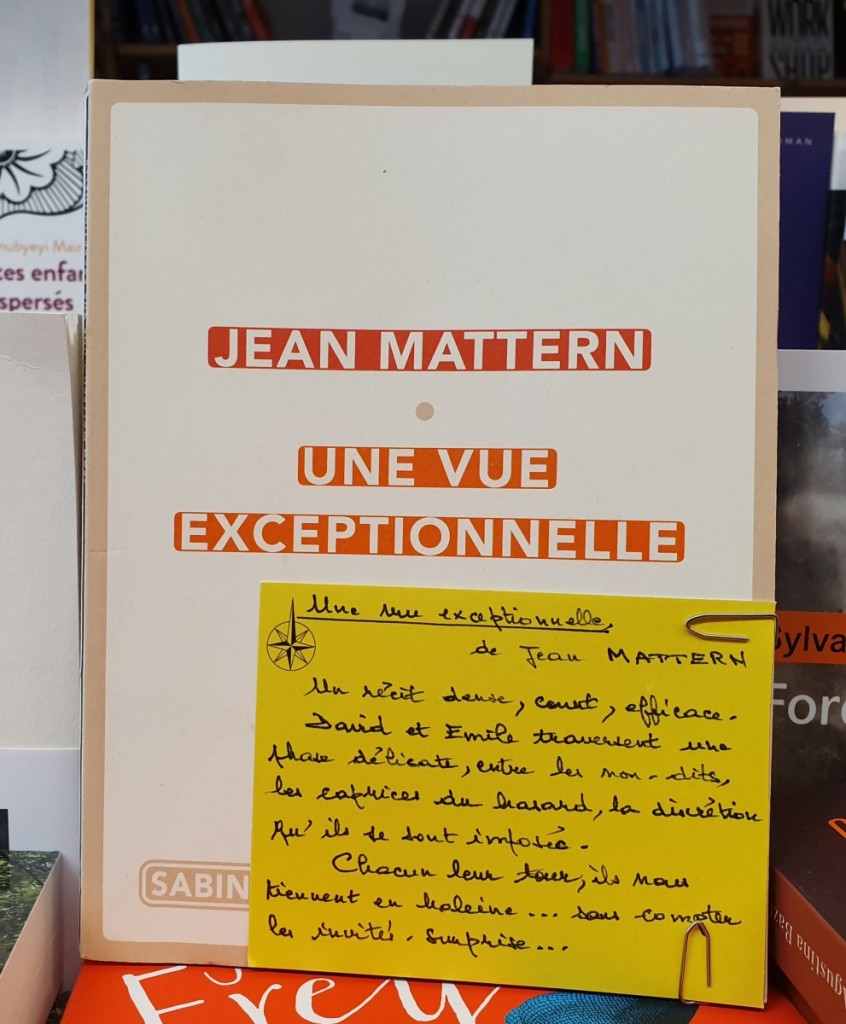 WORK
SHOP
MAN
nubyeyi Mair
ces enfan
spersés
JEAN MATTERN
UNE VUE
EXCEPTIONNELLE
Une vue exceptionnelle,
de Jean MATTERN
Un récit dense, court, efficace.
David et Emile traversent une
phase délicate, entre les non-dits,
les caprices du hasard, la discrétion
qu'ils se sont imposée.
Chacun leur tour, ils nous
tiennent en haleine... sans compter
les invités-surprise...
SABIN
Sylva
Fore
gustina Baz
Frey